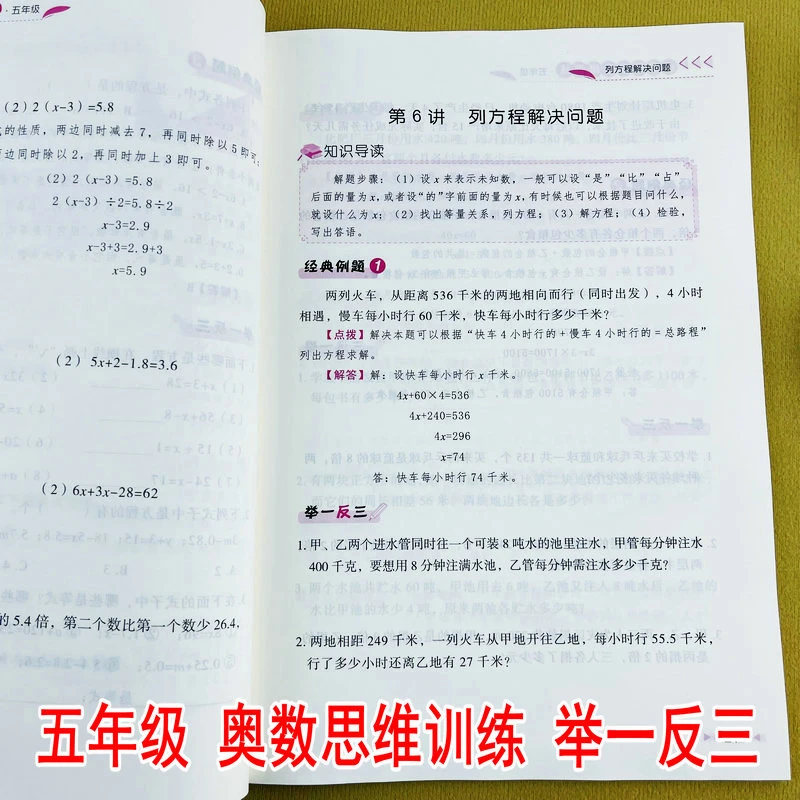 五年级
(2) 2(x-3)=5.8
的性质，两边同时减去 7，再同时除以 5 即可；
边同时除以 2，再同时加上 3 即可。
(2) 2(x-3)=5.8
2(x-3)÷2=5.8÷2
x-3=2.9
x-3+3=2.9+3
x=5.9
(2) 5x+2-1.8=3.6
(2) 6x+3x-28=62
的 5.4 倍，第二个数比第一个数少 26.4，
列方程解决问题
第 6 讲 列方程解决问题
知识导读
解题步骤：（1）设 x 来表示未知数，一般可以设“是”“比”“占”
后面的量为 x，或者设“的”字前面的量为 x，有时候也可以根据题目问什么，
就设什么为 x；（2）找出等量关系，列方程；（3）解方程；（4）检验，
写出答语。
经典例题 1
两列火车，从距离 536 千米的两地相向而行（同时出发），4 小时
相遇，慢车每小时行 60 千米，快车每小时行多少千米？
【点拨】解决本题可以根据“快车 4 小时行的 + 慢车 4 小时行的 = 总路程”
列出方程求解。
【解答】解：设快车每小时行 x 千米。
4x+60×4=536
4x+240=536
4x=296
x=74
答：快车每小时行 74 千米。
举一反三
1. 甲、乙两个进水管同时往一个可装 8 吨水的池里注水，甲管每分钟注水
400 千克，要想用 8 分钟注满水池，乙管每分钟需注水多少千克？
2. 两地相距 249 千米，一列火车从甲地开往乙地，每小时行 55.5 千米，
行了多少小时还离乙地有 27 千米？
五年级 奥数思维训练 举一反三